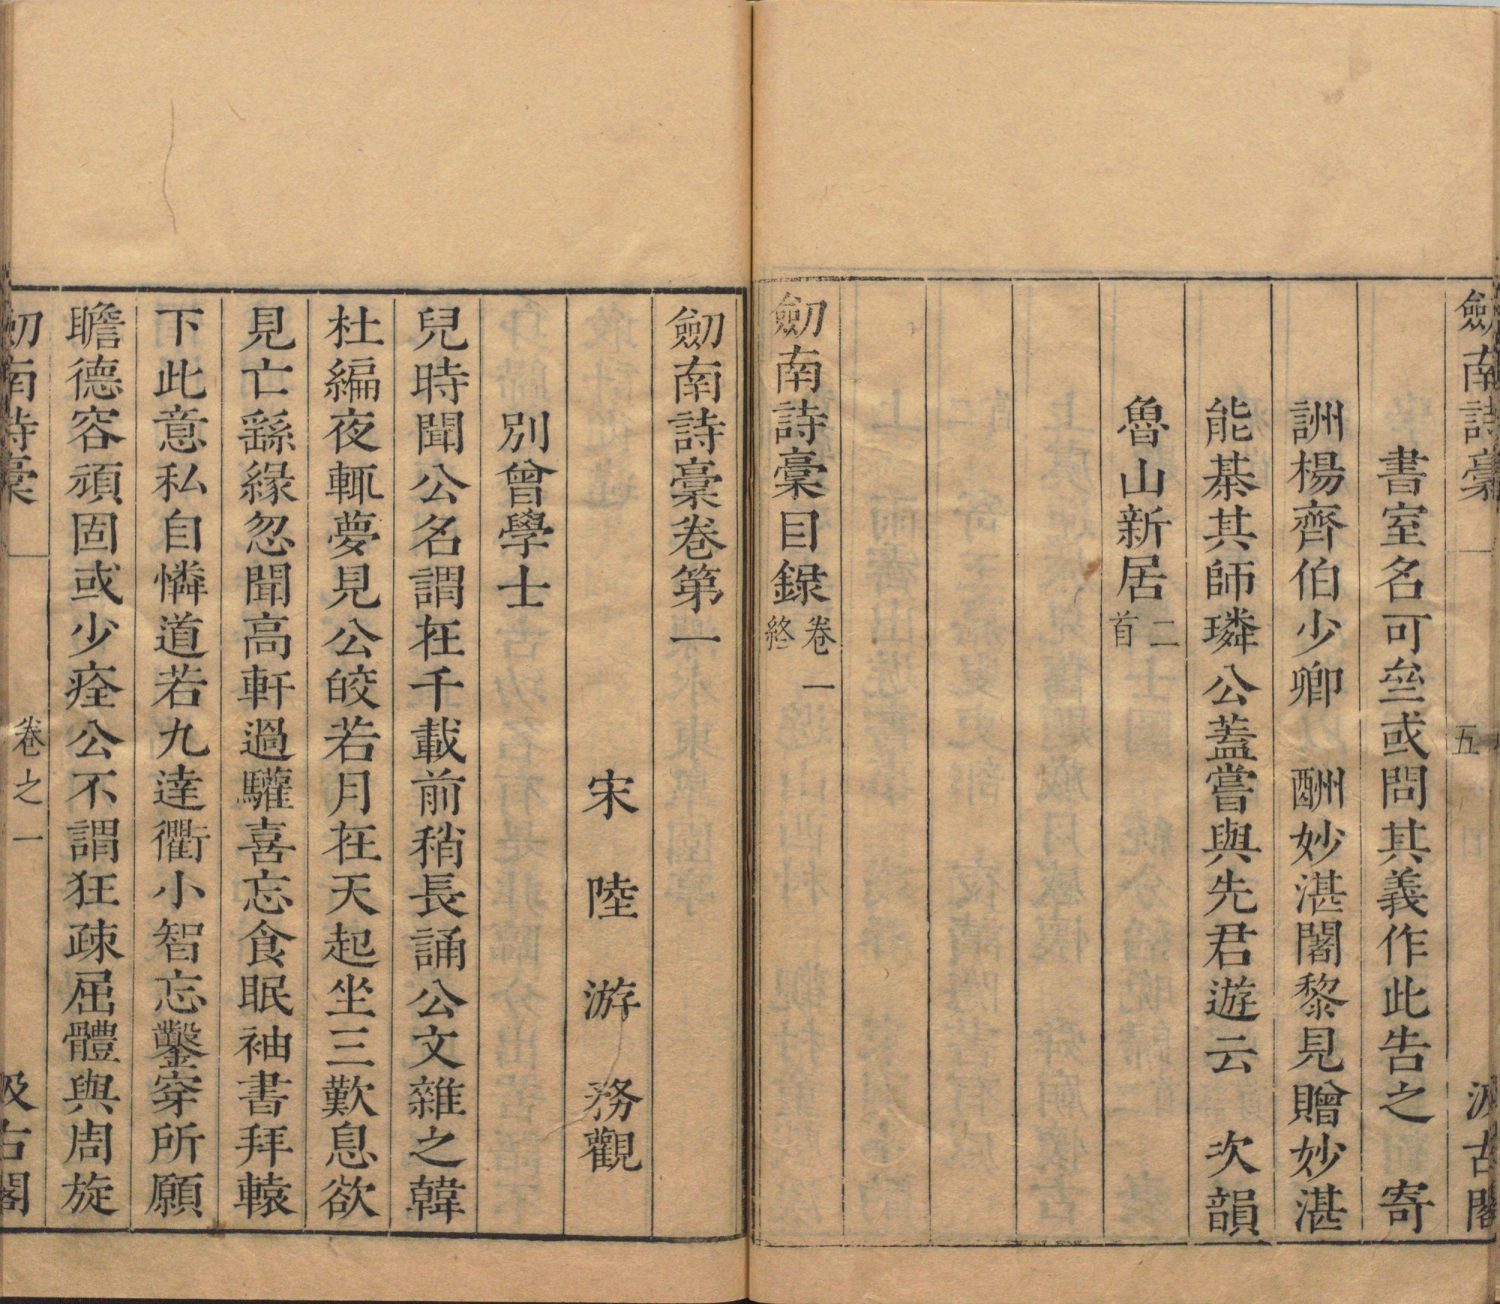 劒南詩稾
五
汲古閣
書室名可垒或問其義作此告之　寄
詶楊齊伯少卿　酬妙湛闍黎見贈妙湛
能棊其師璘公蓋嘗與先君遊云　次韻
魯山新居二首
劒南詩稾目録卷一終
劒南詩稾卷第一
宋　陸　游　務觀
別曾學士
兒時聞公名謂在千載前稍長誦公文雜之韓
杜編夜輒夢見公皎若月在天起坐三歎息欲
見亡繇緣忽聞高軒過驩喜忘食眠袖書拜轅
下此意私自憐道若九逵衢小智忘鑿穿所願
瞻德容頑固或少痊公不謂狂疎屈體與周旋
劒南詩稾
卷之一
汲古閣